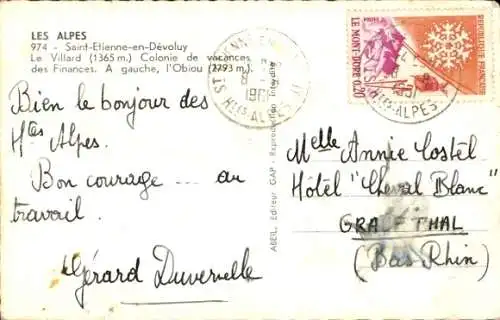 LES ALPES
974 - Saint-Etienne-en-Dévoluy
Le Villard (1365 m.) Colonie de vacances
des Finances. A gauche, l'Obiou (2793 m.)
Bien le bonjour des
Htes Alpes.
Bon courage ... au
travail.
Gérard Duvernelle
ABEIL, Editeur GAP - Reproduction Interdite
POSTES
LE MONT-DORE 0,20
REPUBLIQUE FRANCAISE
HTES ALPES
HTES-ALPES
Melle Annie Costel
Hôtel "Cheval Blanc"
GRAUFTHAL
(Bas Rhin)